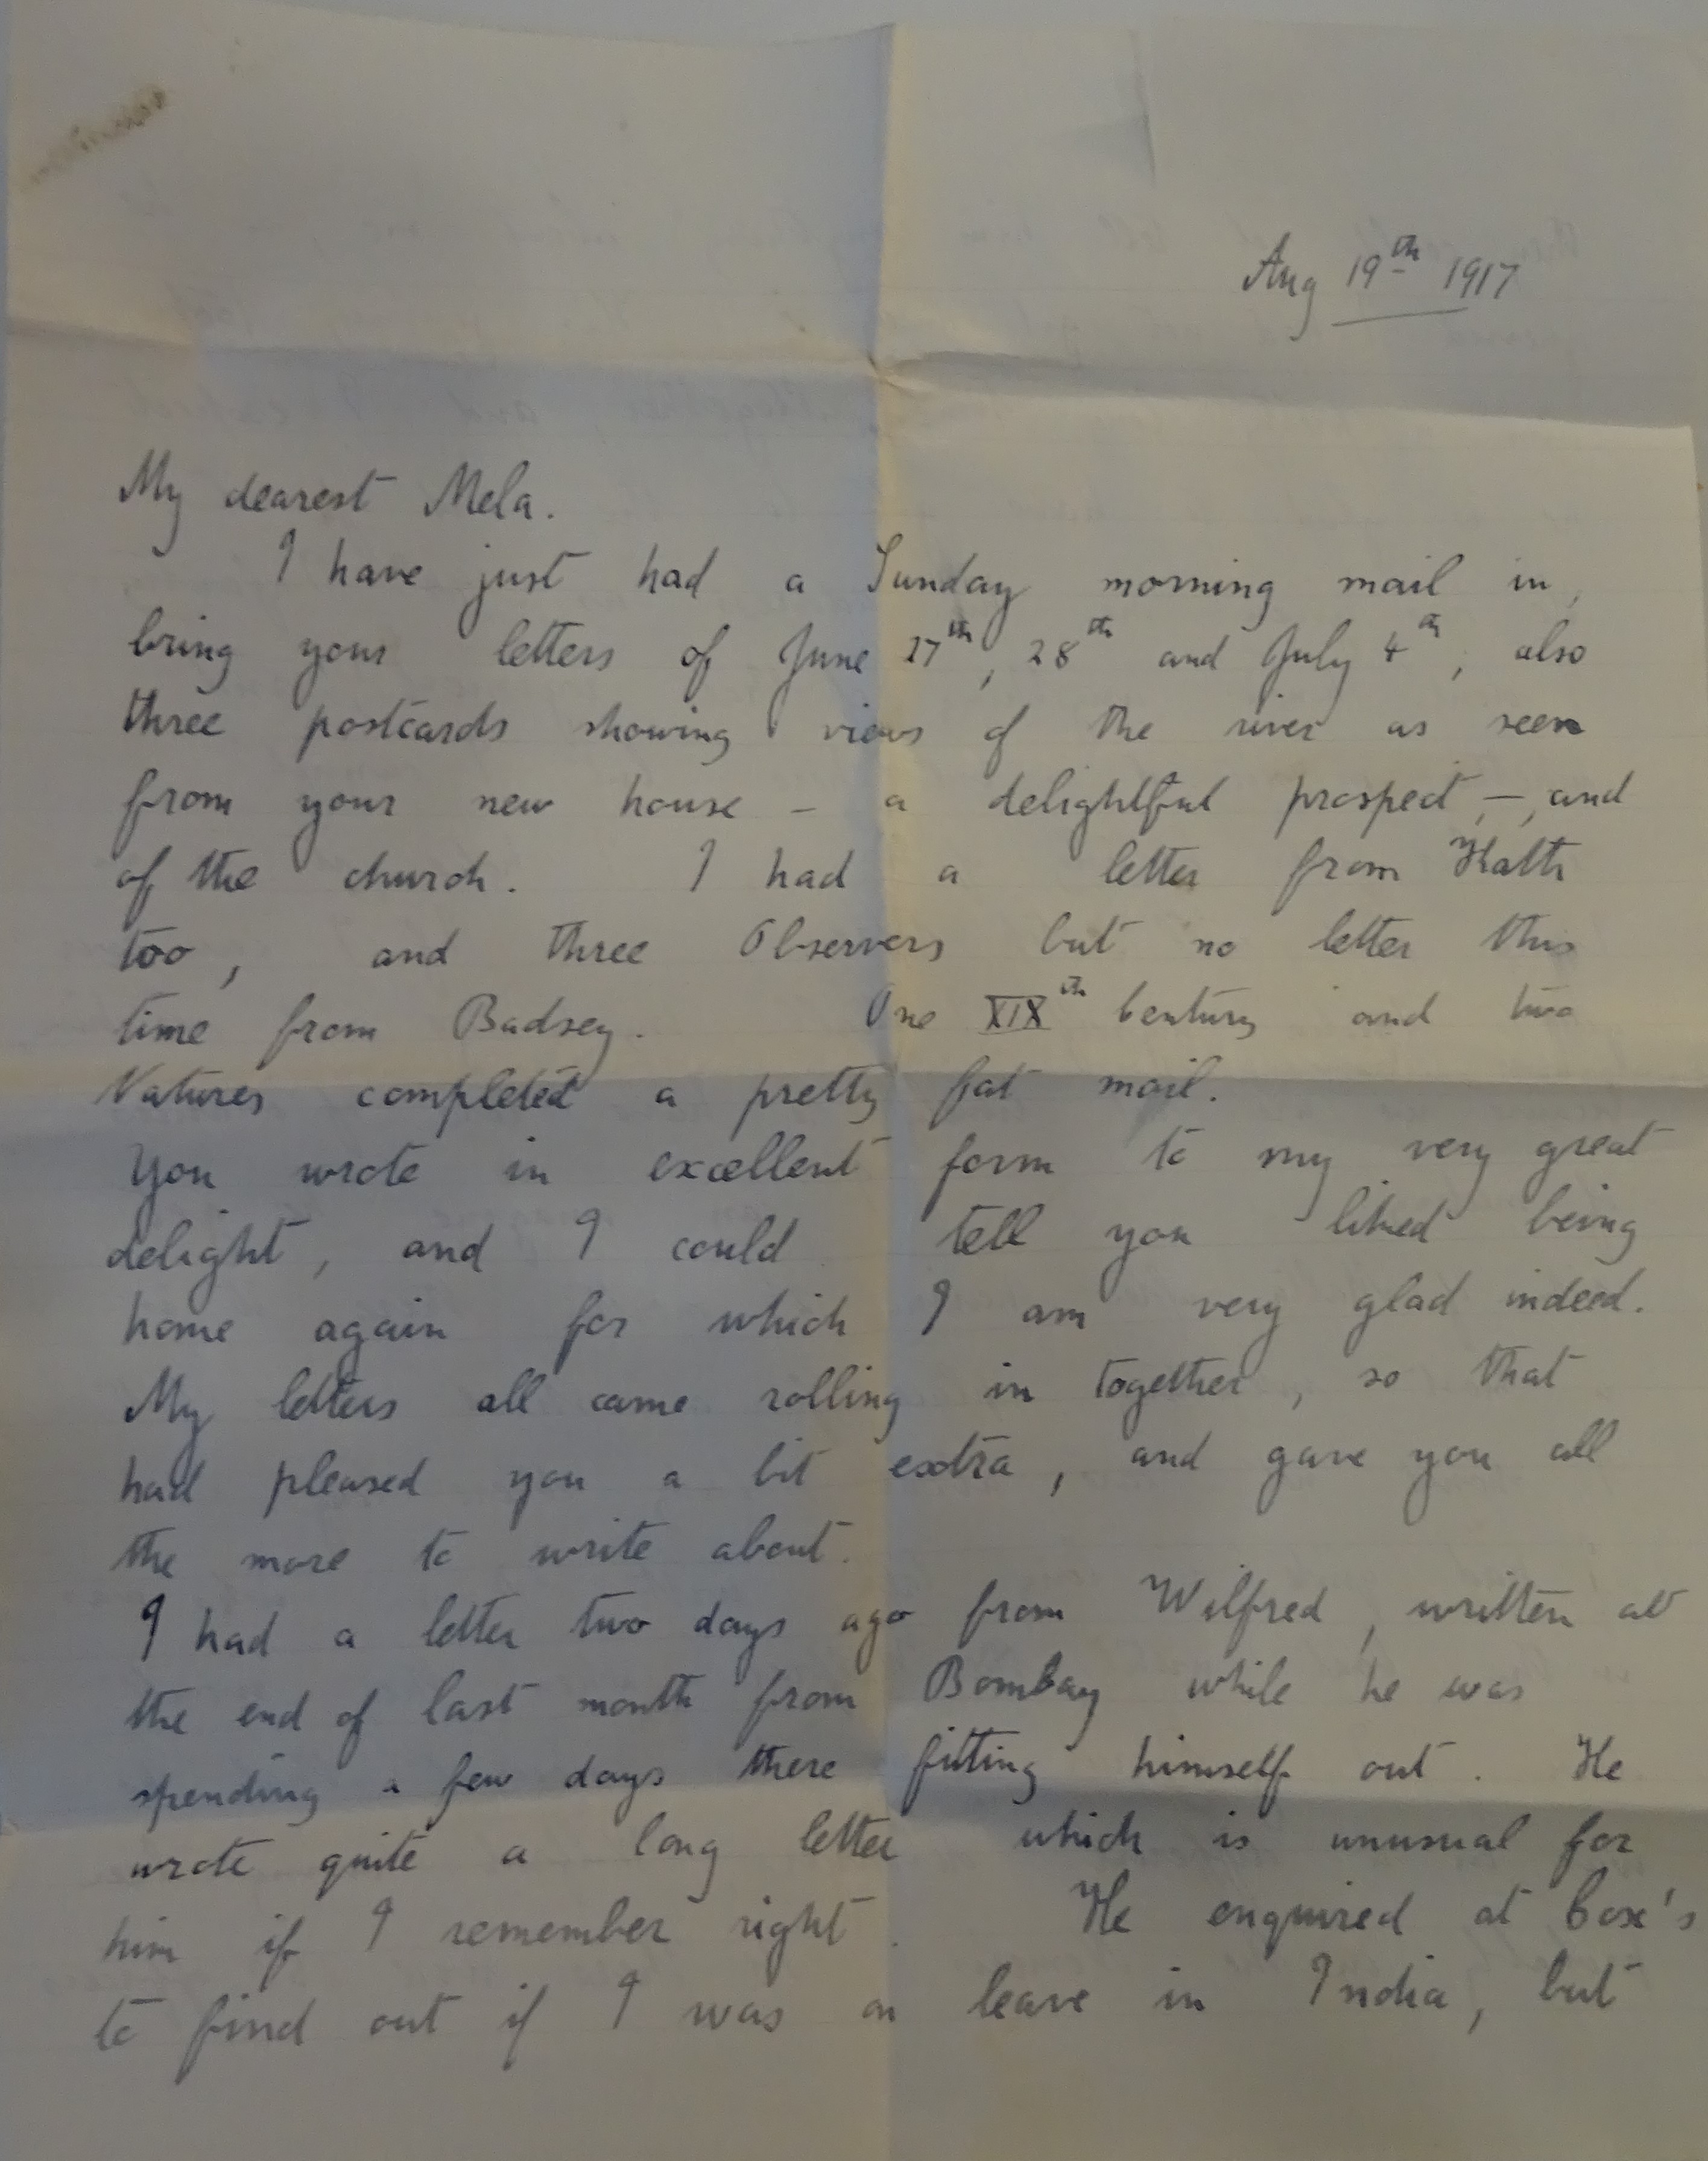 Aug 19th 1917
My dearest Mela.
I have just had a Sunday morning mail in,
bring your letters of June 27th, 28th and July 4th, also
three postcards showing views of the river as seen
from your new house – a delightful prospect –, and
of the church. I had a letter from Kath
too, and three Observers but no letter this
time from Badsey. One XIXth Century and two
Natures completed a pretty fat mail.
You wrote in excellent form to my very great
delight, and I could tell you liked being
home again for which I am very glad indeed.
My letters all came rolling in together, so that
had pleased you a bit extra, and gave you all
the more to write about.
I had a letter two days ago from Wilfred, written at
the end of last month from Bombay while he was
spending a few days there fitting himself out. He
wrote quite a long letter which is unusual for
him if I remember right. He enquired at Cox's
to find out if I was on leave in India, but